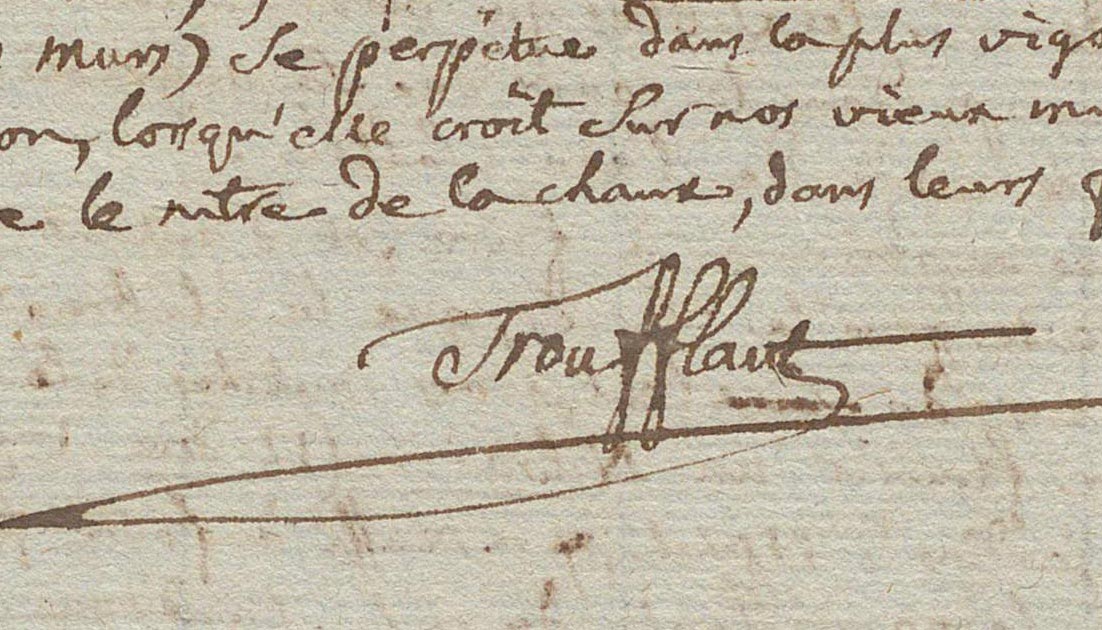 murs) se perpétue dans la plus vigo
on, lorsqu'elle croît sur nos vieux mu
e le nitre de la chaux, dans leurs
Troufflaut